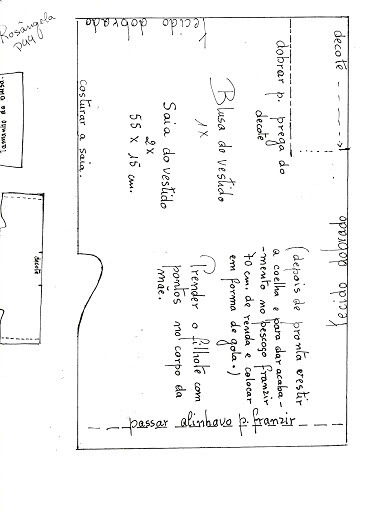 Rosângela
decote
tecido dobrado
dobrar p. prega do
decote
Blusa do vestido
1x
Saia do vestido
2x
55 x 15 cm.
costurar a saia.
tecido dobrado
(depois de pronta vestir
a coelha e para dar acaba-
-mento no pescoço franzir
70 cm. de renda e colocar
em forma de gola.)
Prender o filhote com
pontos no corpo da
mãe.
passar alinhavo p. franzir
decote